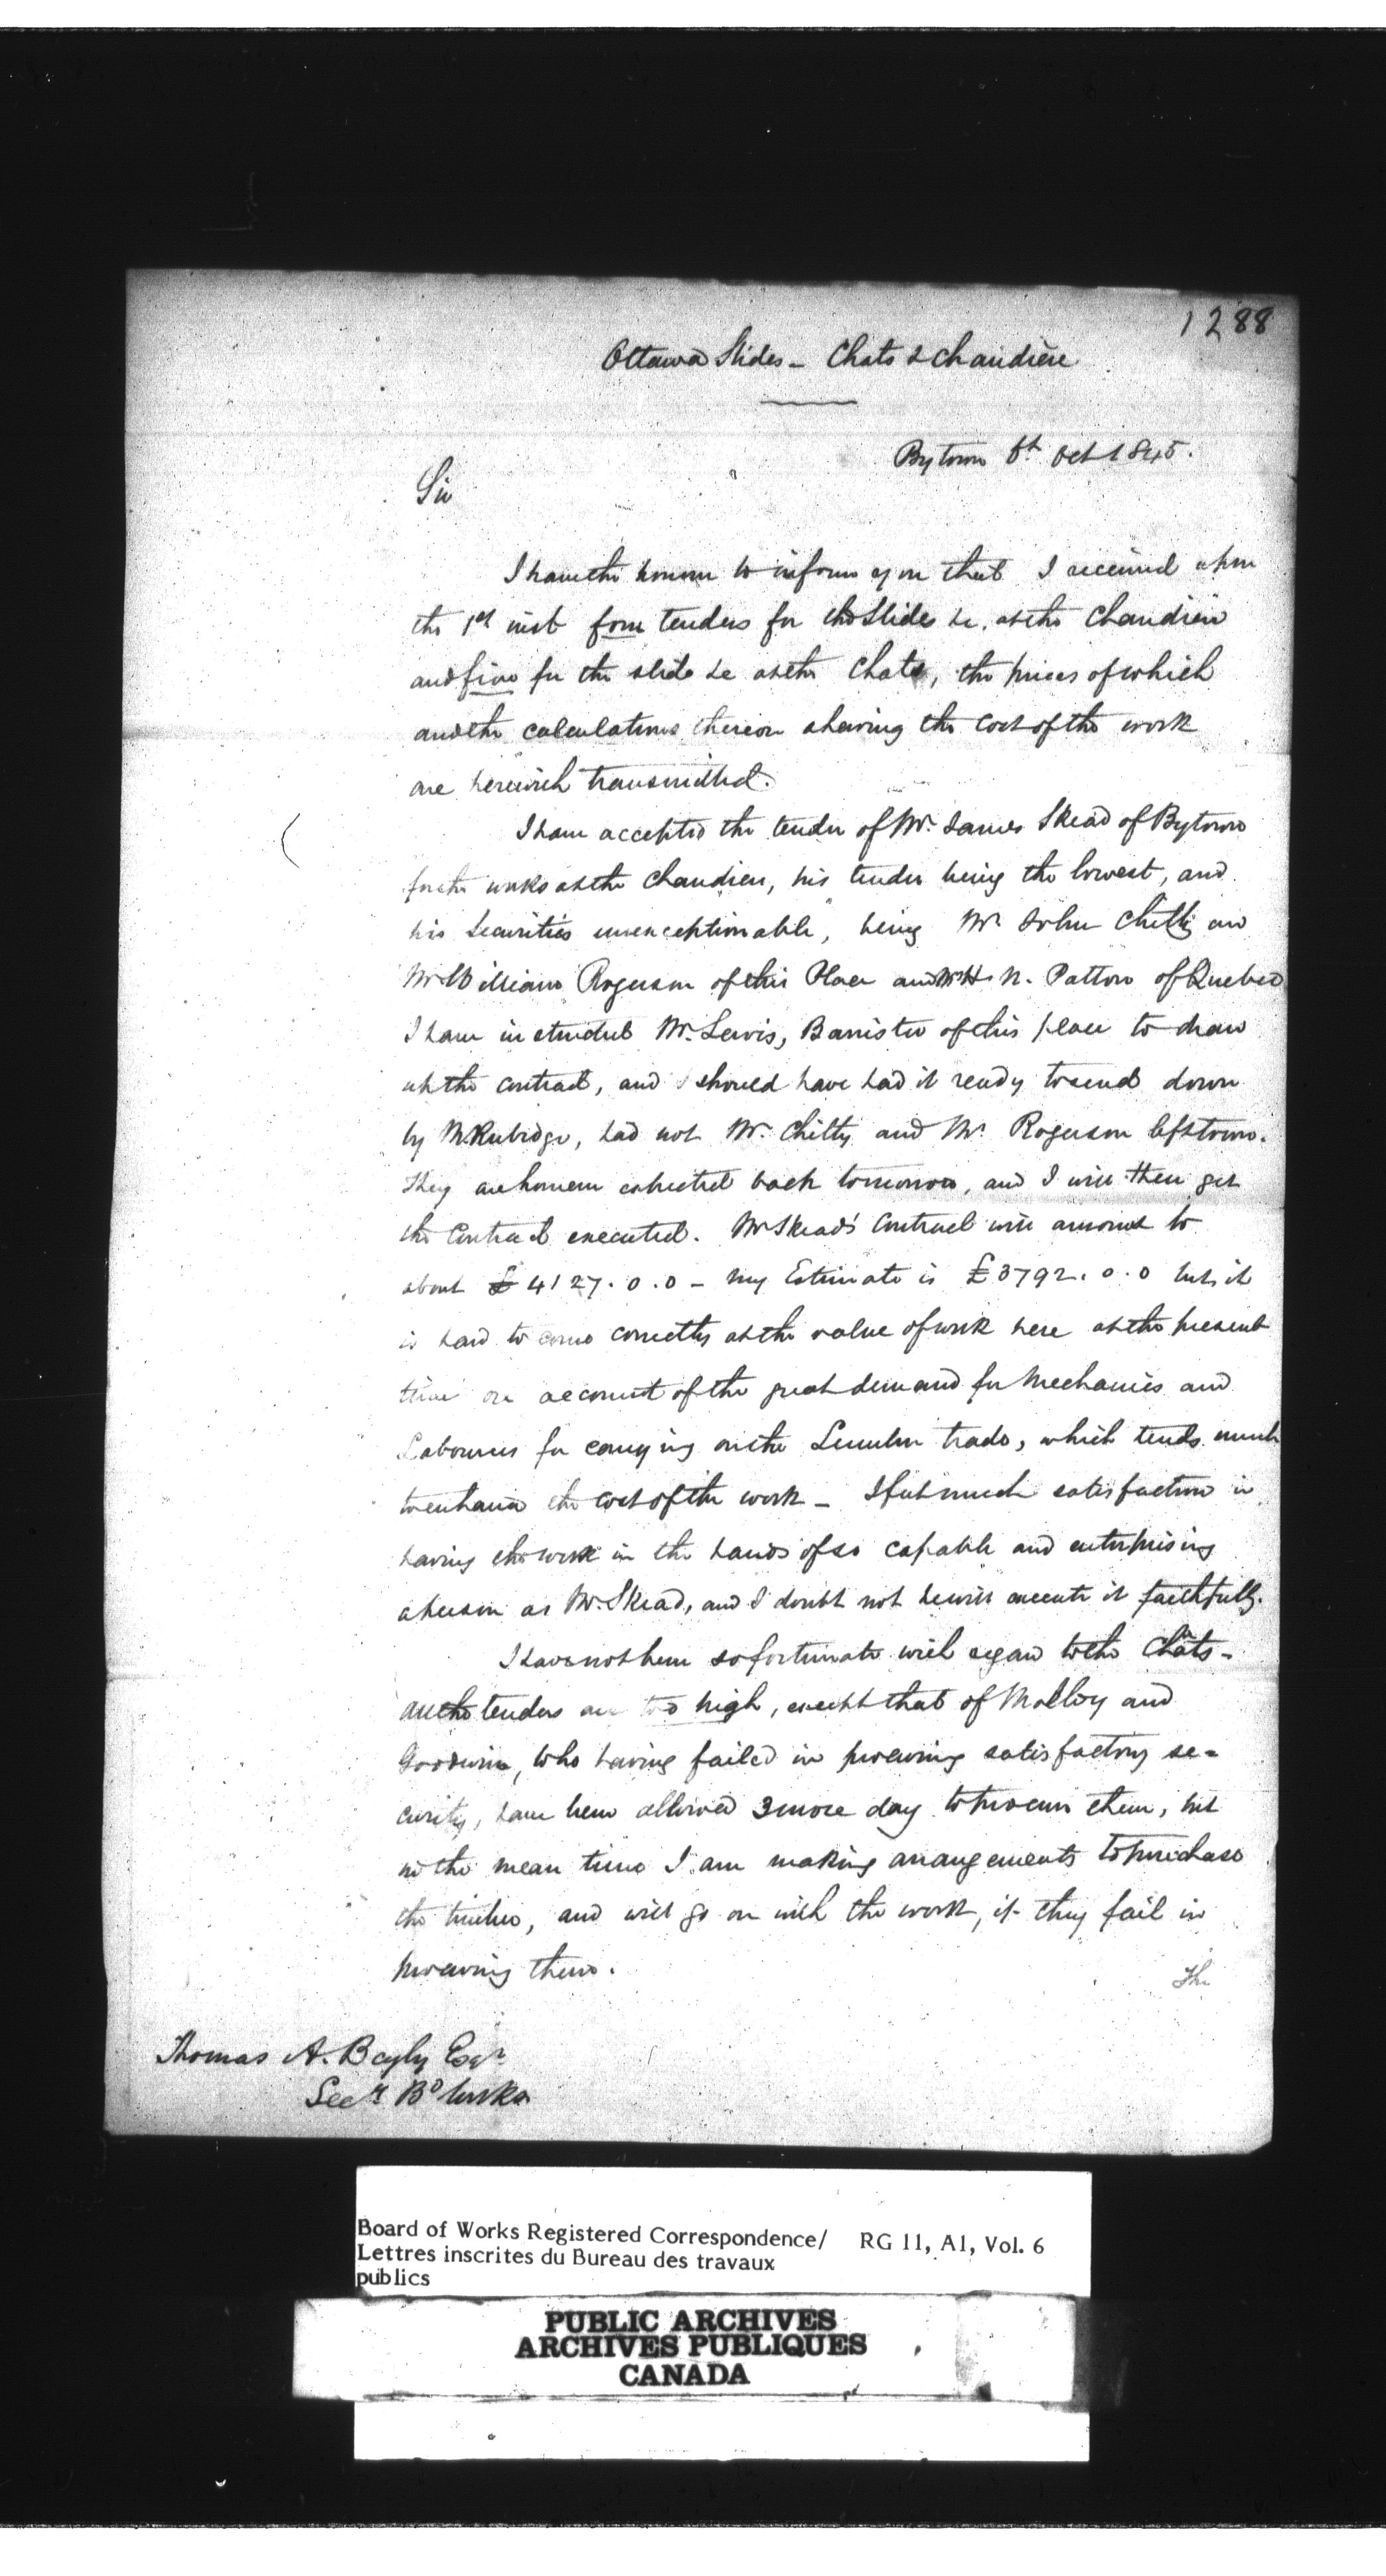 1288
Ottawa Slides - Chats & Chaudière
Bytown 6th Oct 1845.
Sir
I have the honor to inform you that I received upon
the 1st inst four tenders for the Slides &c. at the Chaudière
and five for the slide &c at the Chats, the prices of which
and the calculations thereon shewing the cost of the work
are herewith transmitted.
I have accepted the tender of Mr. James Skead of Bytown
for the works at the Chaudiere, his tender being the lowest, and
his Securities unexceptionable, being Mr John Chitty and
Mr William Rogerson of this Place and Mr H. N. Patton of Quebec
I have instructed Mr. Lewis, Barrister of this place to draw
up the contract, and I should have had it ready to send down
by Mr Rubidge, had not Mr. Chitty and Mr. Rogerson left town.
They are however expected back tomorrow, and I will then get
the Contract executed. Mr Skead's Contract will amount to
about £4127.0.0 - My Estimate is £3792.0.0 but it
is hard to come correctly at the value of work here at the present
time on account of the great demand for Mechanics and
Labourers for carrying on the Lumber trade, which tends much
to enhance the cost of the work - I feel much satisfaction in
having the work in the hands of so capable and enterprising
a person as Mr. Skead, and I doubt not he will execute it faithfully.
I have not been so fortunate with regard to the Châts -
all the tenders are too high, except that of Molloy and
Goodwin, who having failed in procuring satisfactory se=
curity, have been allowed 3 more day to procure them, but
in the mean time I am making arrangements to purchase
the timber, and will go on with the work, if they fail in
procuring them.
The
Thomas A. Begly Esqr
Secy Bd Works
Board of Works Registered Correspondence/ RG 11, A1, Vol. 6
Lettres inscrites du Bureau des travaux
publics
PUBLIC ARCHIVES
ARCHIVES PUBLIQUES
CANADA